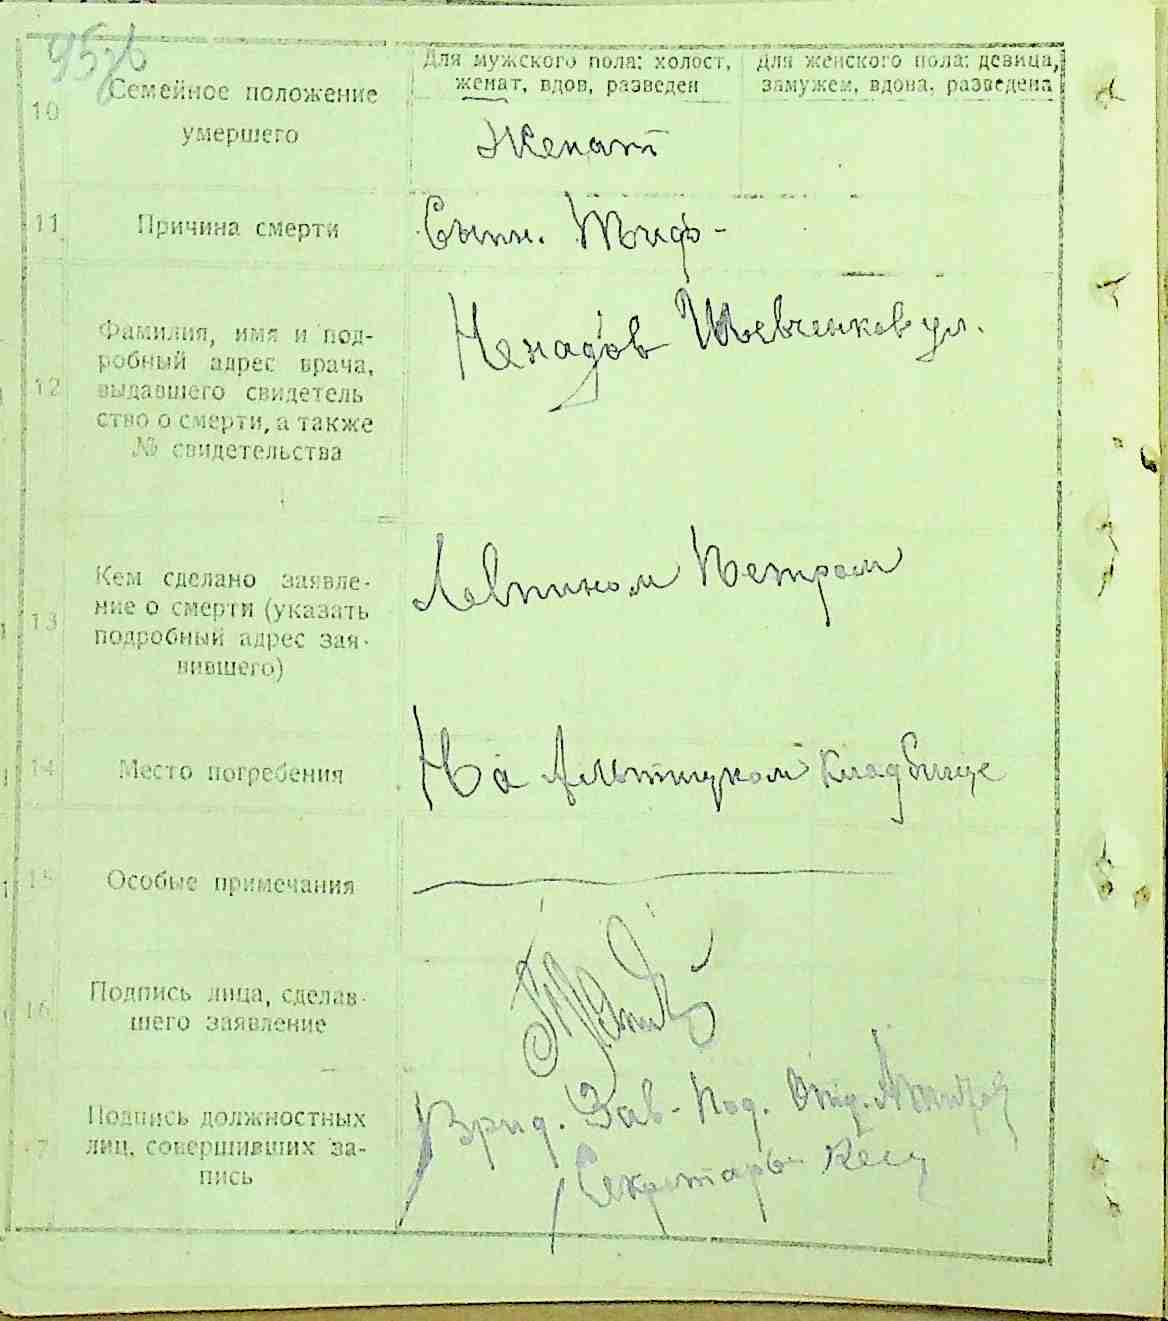 Для мужского пола: холост, женат, вдов, разведен
Для женского пола: девица, замужем, вдова, разведена
10
Семейное положение
умершего
Женат
11
Причина смерти
Сыпн. Тиф-
12
Фамилия, имя и под-
робный адрес врача,
выдавшего свидетель
ство о смерти, а также
№ свидетельства
Ненадов Шевченков ул.
13
Кем сделано заявле-
ние о смерти (указать
подробный адрес зая-
вившего)
Петром
14
Место погребения
На кладбище
15
Особые примечания
16
Подпись лица, сделав-
шего заявление
7
Подпись должностных
лиц, совершивших за-
пись
Врид. Зав. Под. Отд.
Секретарь